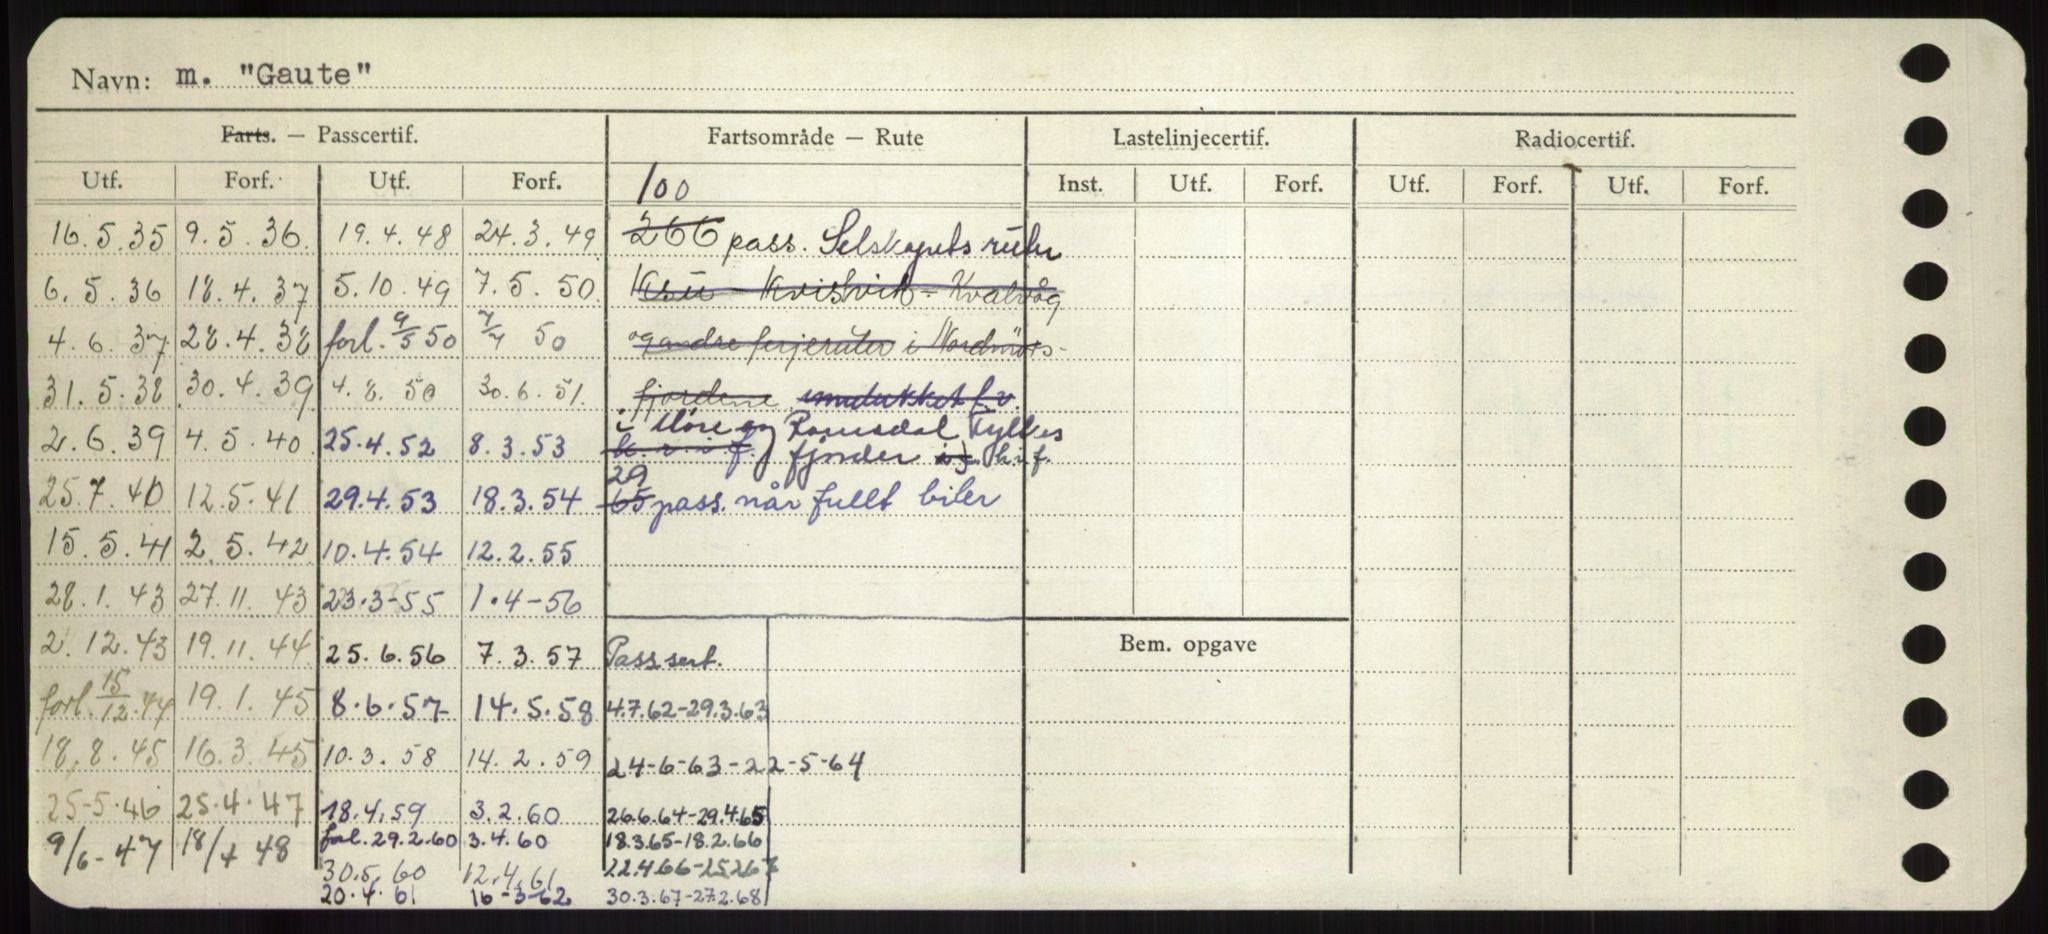 Navn: m. "Gaute"
Farts. — Passcertif. Fartsområde — Rute Lastelinjecertif. Radiocertif.
Utf. Forf. Utf. Forf. 100 Inst. Utf. Forf. Utf. Forf. Utf. Forf.
16.5.35 9.5.36. 19.4.48 24.3.49 266 pass. Selskapets ruter
6.5.36 18.4.37 5.10.49 7.5.50. Ksu - Kvisvik - Kvalvåg
4.6.37 28.4.38 forl. 9/5 50 7/7 50 og andre ferjeruter i Nordmörs-
31.5.38 30.4.39 4.8.50 30.6.51. fjordene innelukket f.v.
i Möre og Romsdal Fylkes
2.6.39 4.5.40 25.4.52 8.3.53 k. v. i. f. fjorder i h.i.f.
29
25.7.40 12.5.41 29.4.53 18.3.54 65 pass. når fullt biler
15.5.41 2.5.42 10.4.54 12.2.55
28.1.43 27.11.43 23.3-55 1.4-56
2.12.43 19.11.44 25.6.56 7.3.57 Pass sert. Bem. opgave
forl. 15/12.44 19.1.45 8.6.57 14.5.58 4.7.62-29.3.63
18.8.45 16.3.45 10.3.58 14.2.59 24-6-63-22-5-64
25-5.46 25.4.47 18.4.59 3.2.60 26.6.64-29.4.65
9/6-47 18/4 48 fol. 29.2.60 3.4.60 18.3.65-18.2.66
30.5.60 12.4.61 22.4.66-25.2.67
20.4.61 16-3-62 30.3.67-27.2.68